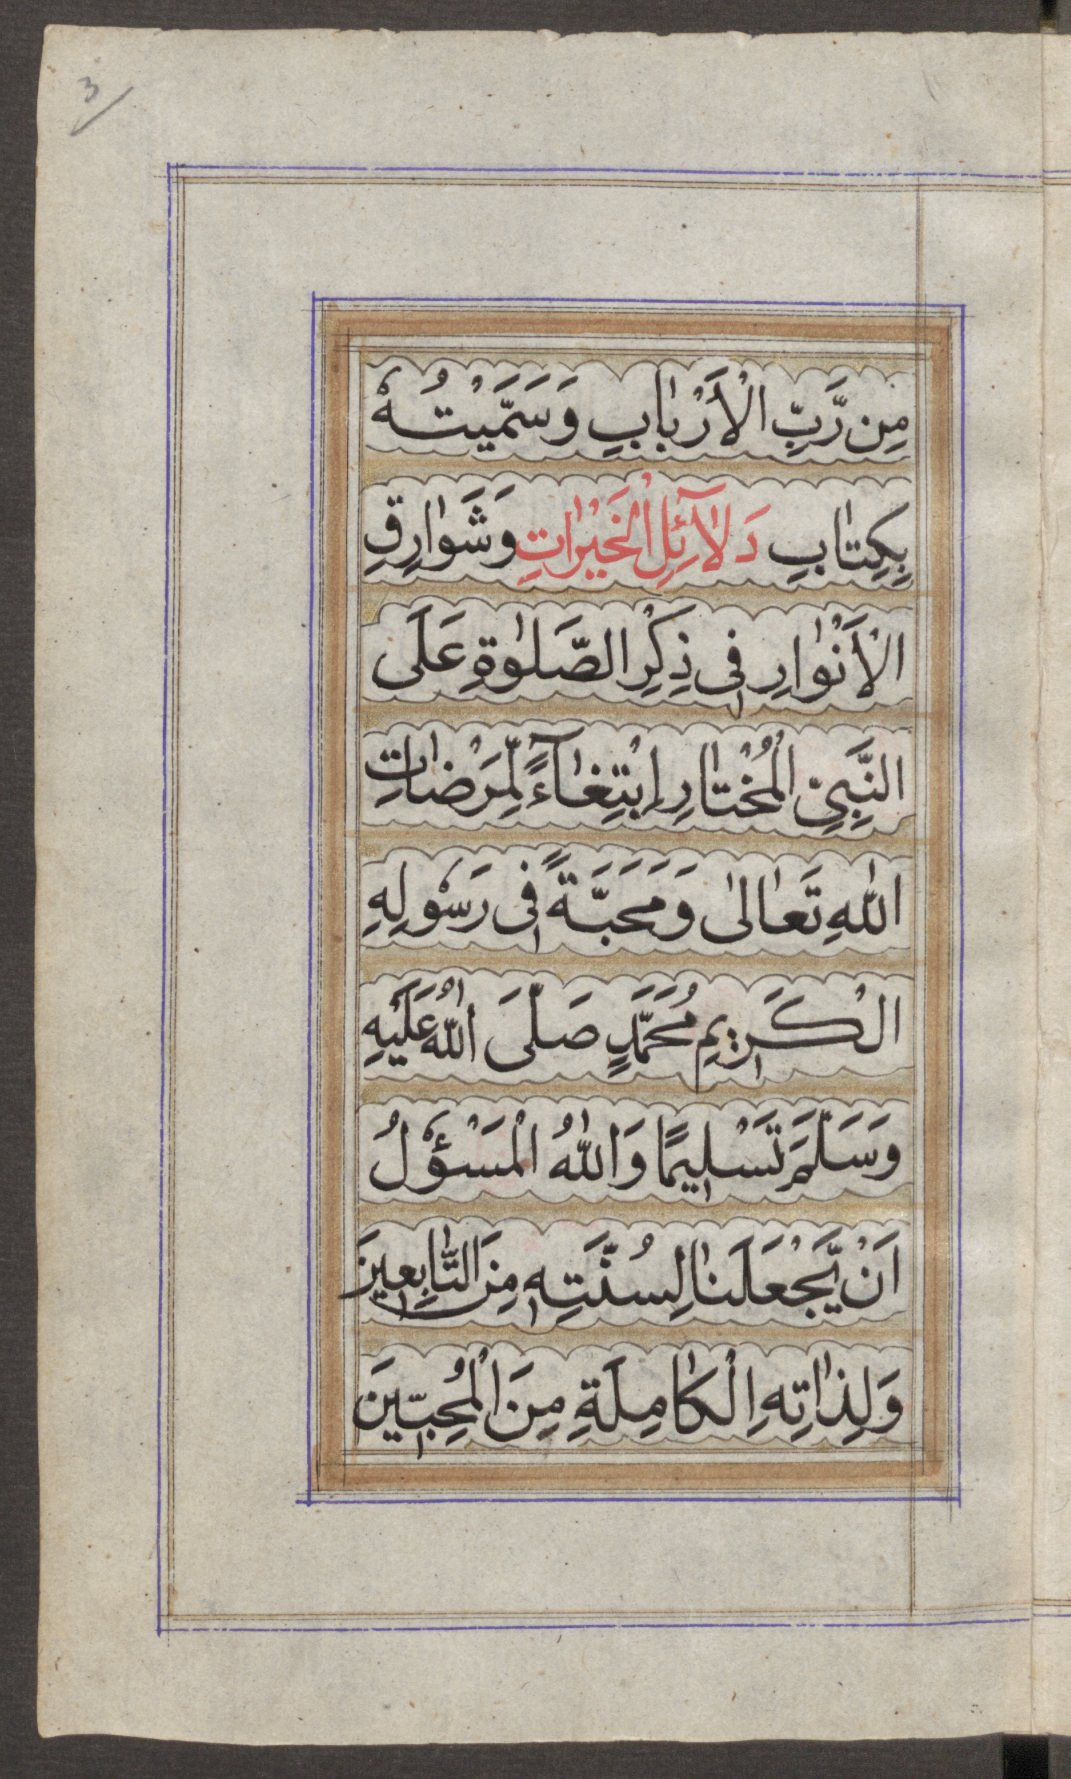 3
مِن رَّبِّ الْاَرْبَابِ وَسَمَّيْتُهٗ
بِكِتَابِ دَلَآئِلِ الْخَيْرَاتِ وَشَوَارِقِ
الْاَنْوَارِ فِى ذِكْرِ الصَّلٰوةِ عَلَى
النَّبِىِّ الْمُخْتَارِ اِبْتِغَآءً لِّمَرْضَاتِ
اللّٰهِ تَعَالٰى وَمَحَبَّةً فِى رَسُوْلِهِ
الْكَرِيْمِ مُحَمَّدٍ صَلَّى اللّٰهُ عَلَيْهِ
وَسَلَّمَ تَسْلِيْمًا وَاللّٰهُ الْمَسْؤُلُ
اَنْ يَّجْعَلَنَا لِسُنَّتِهٖ مِنَ التَّابِعِيْنَ
وَلِذَاتِهِ الْكَامِلَةِ مِنَ الْمُحِبِّيْنَ